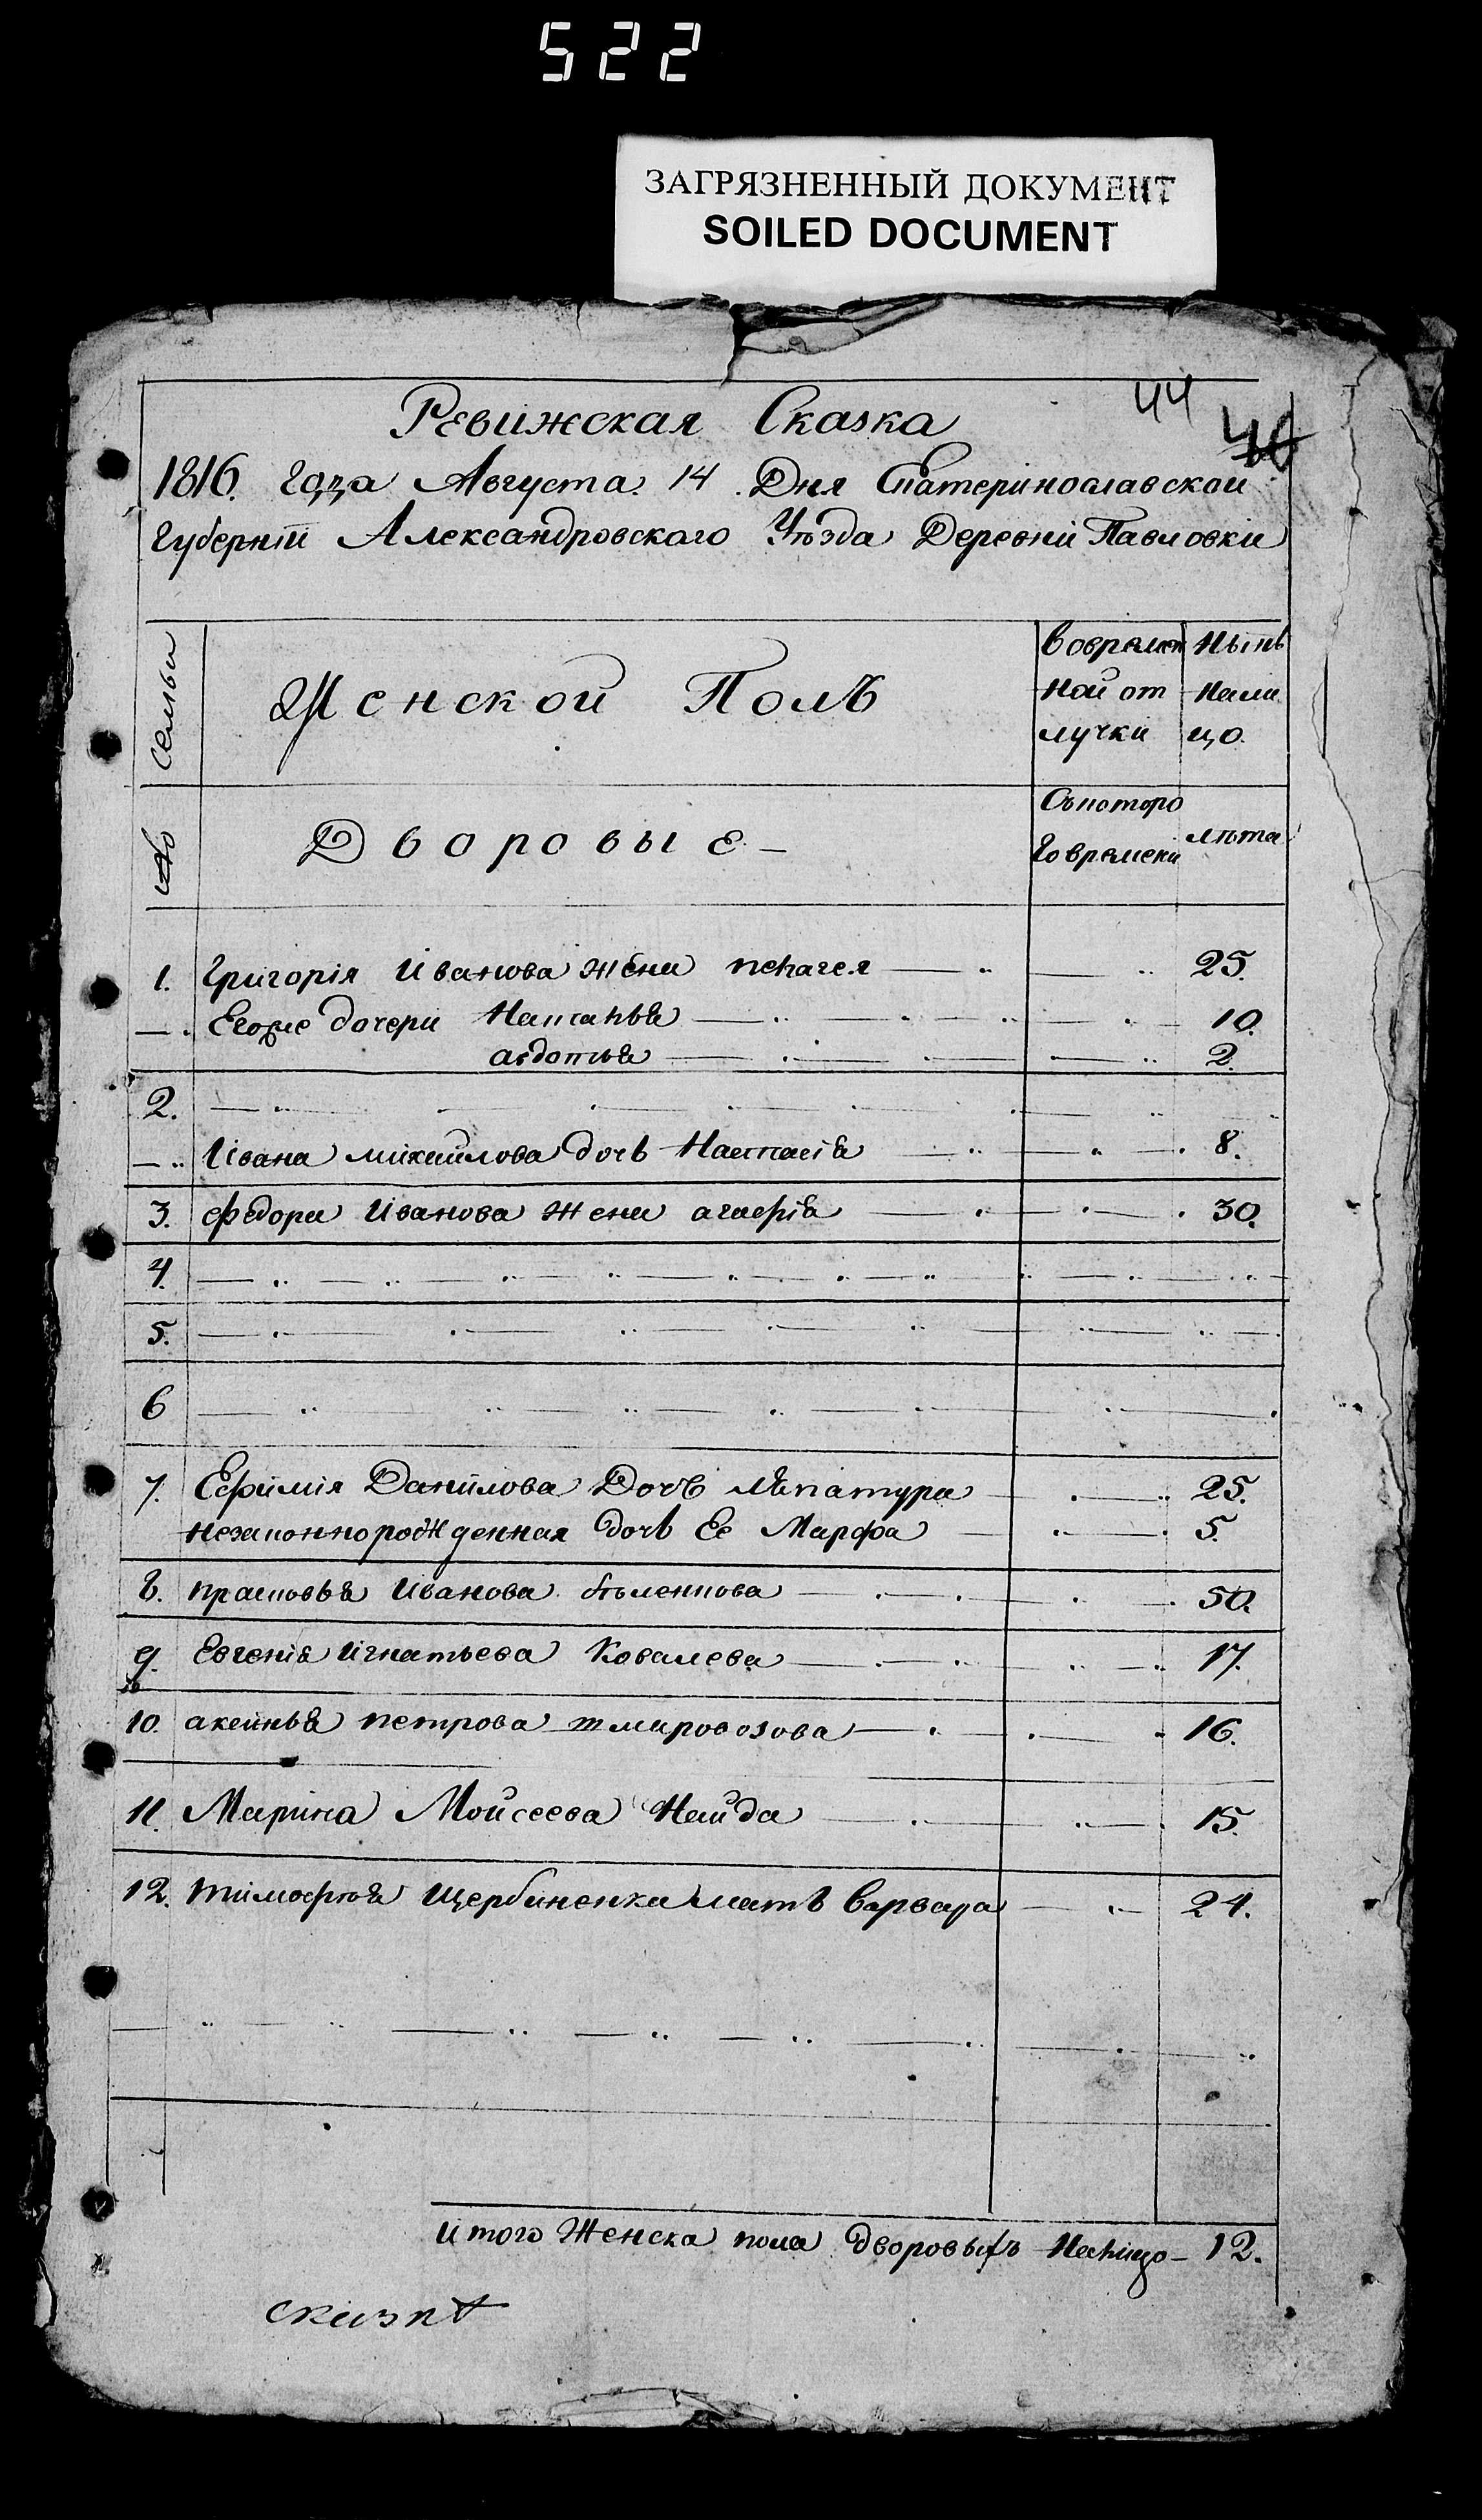 522
ЗАГРЯЗНЕННЫЙ ДОКУМЕНТ
SOILED DOCUMENT
44
40
Ревижская Сказка
1816. года Августа. 14. Дня Екатеринославской
губерніи Александровского Уѣзда Деревни Павловки
Семьи
Женской Полъ
во времен
ной от
лучки
Нынѣ
нали
цо.
№
Дворовые
Съкоторо
го времени
лѣта
1. Григорія Иванова жена 25.
Егоже дочери 10.
авдотья 2.
2.
Ивана михайлова дочь Настасія 8.
3. федора Иванова жена 30.
4.
5.
6
7. Ефимія Данилова Дочь 25.
незаконнорожденная дочь Ее Марфа 5.
8. прасковья Иванова 50.
9. Евгенія игнатьева Ковалева 17.
10. аксинья петрова 16.
11. Марина Мойсеева Найда 15.
12. тимофея Щербиненка мать варвара 24.
итого Женска пола дворовыхъ налицо 12.